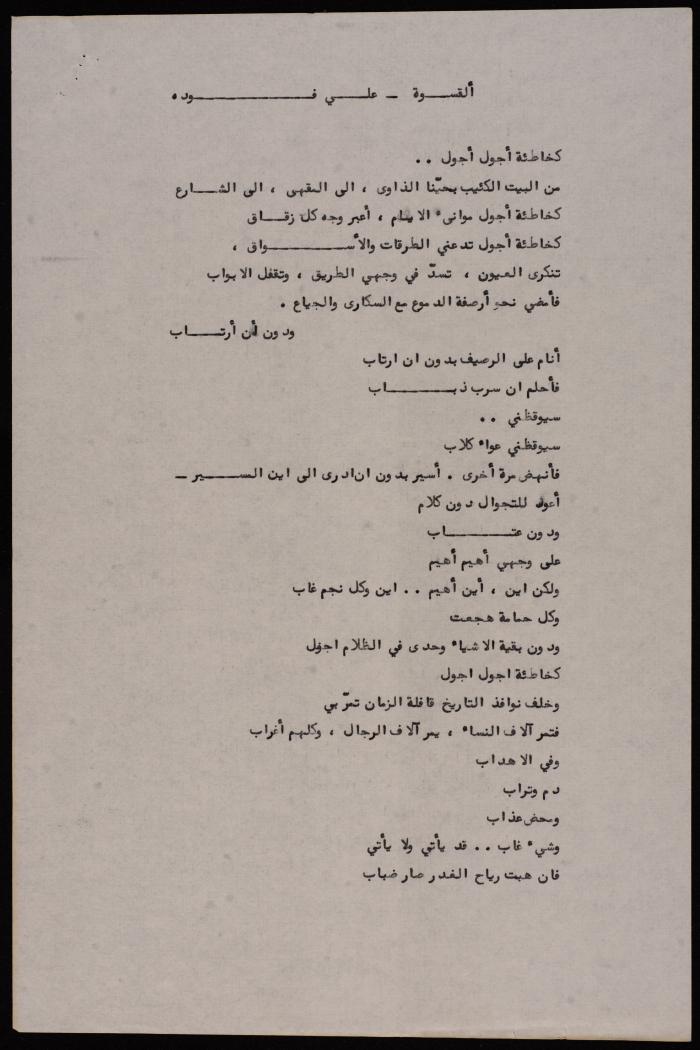 ألقســوة - علــي فــــــــوده
كخاطئة أجول أجول ..
من البيت الكئيب بحيّنا الذاوى ، الى المقهى ، الى الشــارع
كخاطئة أجول موانىء الايام ، أعبر وجه كل زقــاق
كخاطئة أجول تدعني الطرقات والأســــــواق ،
تنكرى العيون ، تسدّ في وجهي الطريق ، وتقفل الابواب
فأمضي نحو أرصفة الدموع مع السكارى والجياع .
ودون أن أرتــاب
أنام على الرصيف بدون ان ارتاب
فأحلم ان سرب ذبــــــاب
سيوقظني ..
سيوقظني عواء كلاب
فأنهض مرة أخرى . أسير بدون ان ادرى الى اين الســير -
أعود للتجوال دون كلام
ودون عتــــــاب
على وجهي أهيم أهيم
ولكن اين ، أين أهيم .. اين وكل نجم غاب
وكل حمامة هجعت
ودون بقية الاشياء وحدى في الظلام اجول
كخاطئة اجول اجول
وخلف نوافذ التاريخ قافلة الزمان تمرّ بي
فتمر آلاف النساء ، يمر آلاف الرجال ، وكلهم أغراب
وفي الاهداب
دم وتراب
ومحض عذاب
وشيء غاب .. قد يأتي ولا يأتي
فان هبت رياح الغدر صار ضباب